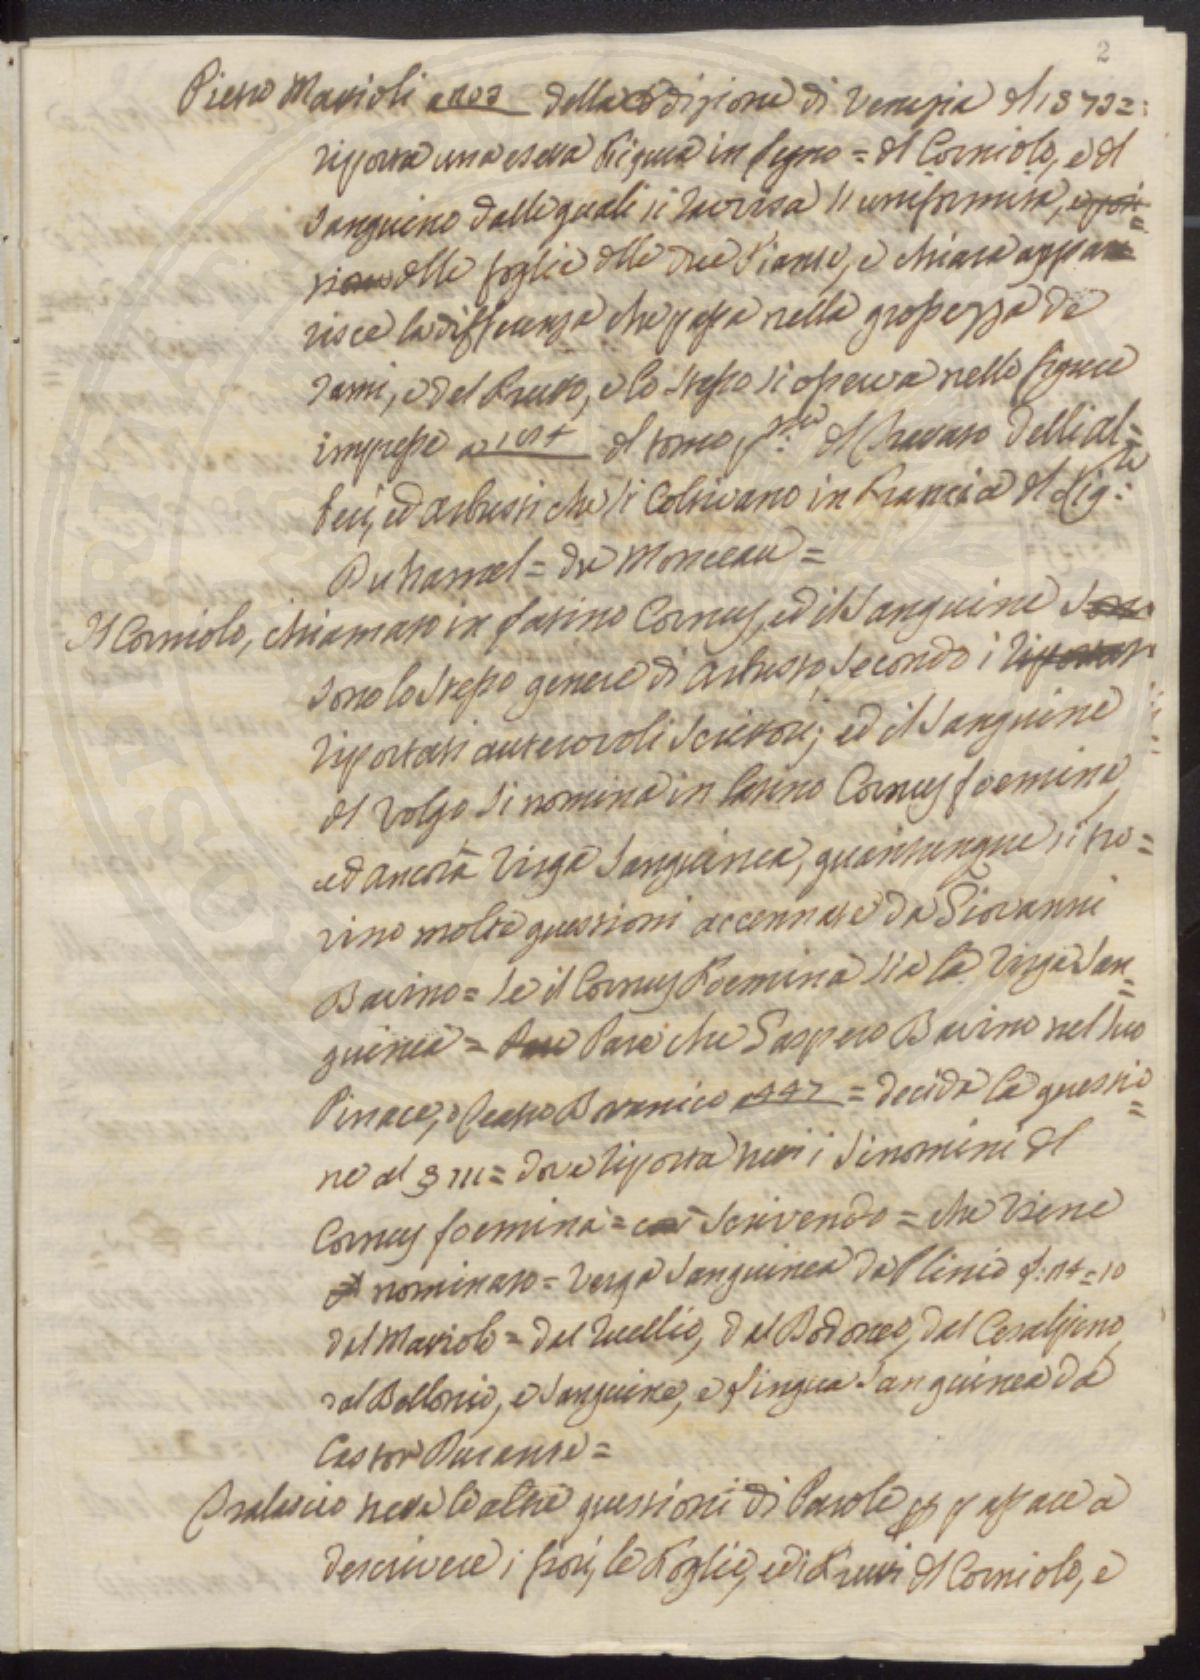 2
Pietro Matioli a 203 della Edizione di Venezia del 1573=:
riporta una esatta figura in legno = del Corniolo, e del
Sanguino dalli quali si ravvisa l'uniformità,
delle foglie delle due Piante, e chiara appa
risce la differenza che passa nella grossezza de
rami, e del frutto, e lo stesso si osserva nelle figure
impresse a 184 del tomo p.mo del Trattato delli al=
beri, ed arbusti che si coltivano in Francia del Sig:re
Duhamel = du Monceau =
Il Corniolo, chiamato in latino Cornus, ed il Sanguine
sono lo stesso genere di arbusto secondo i
riportati autorevoli scrittori; ed il Sanguine
dal volgo si nomina in latino Cornus foemina,
ed ancora Virga Sanguinea, quantunque si tro=
vino molte questioni accennate da Giovanni
Bavino = se il Cornus Foemina sia la Virga San=
guinea = Pare che Gaspero Bavino nel suo
Pinace, o Teatro Botanico a 447 = decida la questio=
ne al § III = dove riporta tutti i sinonimi del
Cornus foemina = scrivendo = che viene
nominato = Verga Sanguinea da Plinio l: 24 = 10
dal Matiolo = dal Ruellio, dal Dodoneo, dal Cesalpino,
dal Bellonio, e Sanguine, e Lingua Sanguinea da
Castor Durante =
Tralascio tutte le altre questioni di Parole p passare a
descrivere i fiori, le foglie, ed i frutti del Corniolo, e